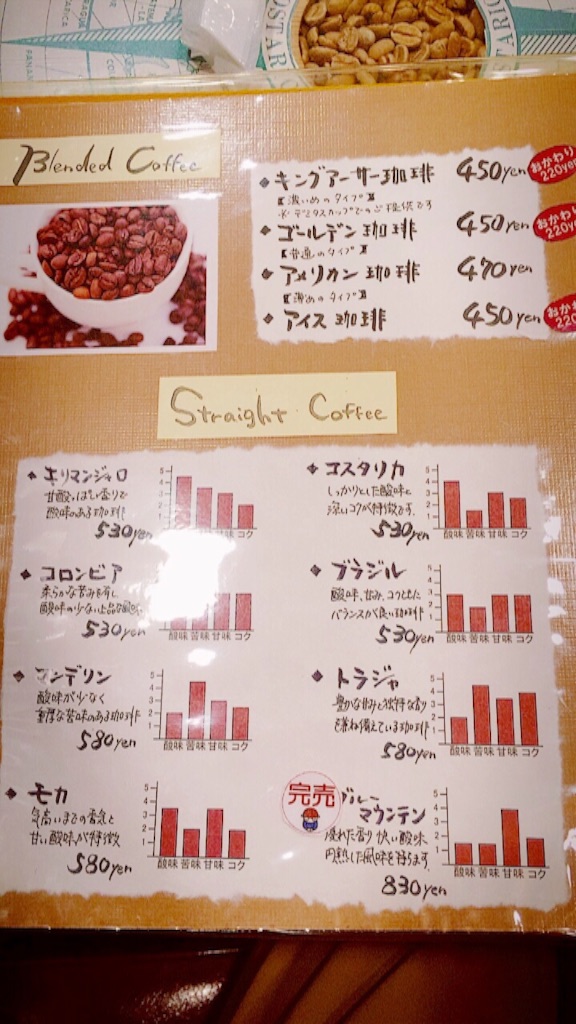 Blended Coffee
◆キングアーサー珈琲 450yen
おかわり
220yen
【濃いめのタイプ】
※デミタスカップでのご提供です
◆ゴールデン珈琲 450yen
【普通のタイプ】
◆アメリカン珈琲 470yen
【薄めのタイプ】
◆アイス珈琲 450yen
Straight Coffee
◆キリマンジャロ
甘酸っぱい香りで
酸味のある珈琲
530yen
5
4
3
2
1
酸味 苦味 甘味 コク
◆コスタリカ
しっかりとした酸味と
深いコクが特徴です。
530yen
5
4
3
2
1
酸味 苦味 甘味 コク
◆コロンビア
柔らかな苦みを有し
酸味の少ない上品な
530yen
酸味 苦味 甘味 コク
◆ブラジル
酸味、甘み、コクともに
バランスが良い珈琲
530yen
5
4
3
2
1
酸味 苦味 甘味 コク
マンデリン
酸味が少なく
重厚な苦味のある珈琲
580yen
5
4
3
2
1
酸味 苦味 甘味 コク
◆トラジャ
豊かな甘みと独特な香り
を兼ね備えている珈琲
580yen
5
4
3
2
1
酸味 苦味 甘味 コク
◆モカ
気高いまでの香気と
甘い酸味が特徴
580yen
5
4
3
2
1
酸味 苦味 甘味 コク
完売
ブルー
マウンテン
優れた香り快い酸味
円熟した風味を持ちます。
830yen
5
4
3
2
1
酸味 苦味 甘味 コク